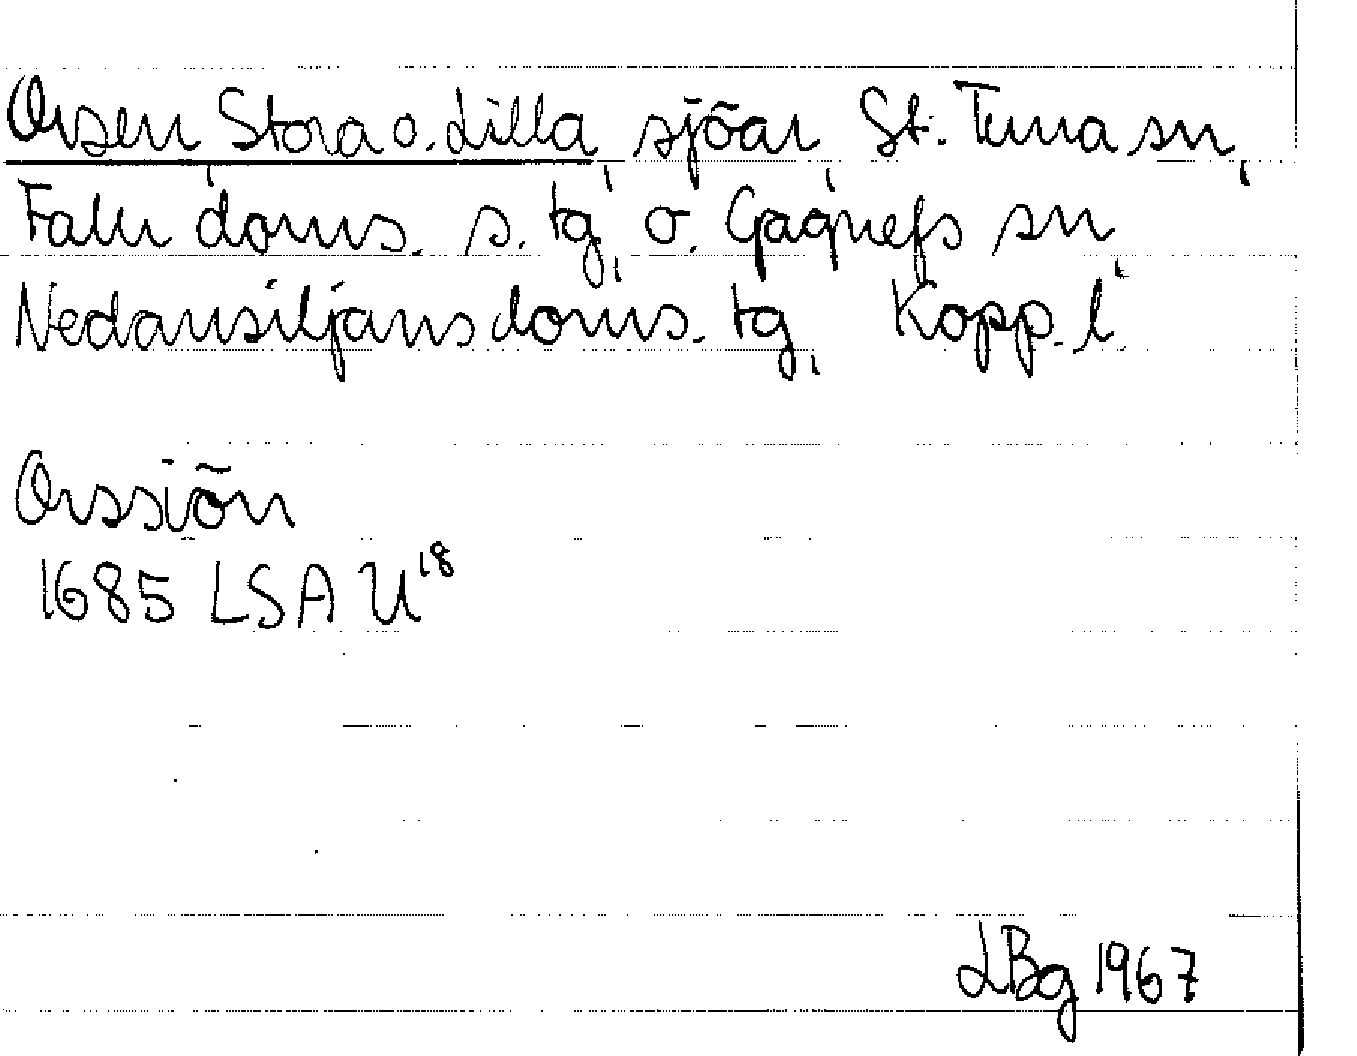 Orsen Stora o. Lilla, sjöar, St. Tuna sn,
Falu doms. s. tg, o. Gagnefs sn
Nedansiljans doms. tg, Kopp. l
Orssiön
1685 LSA U18
LBg 1967